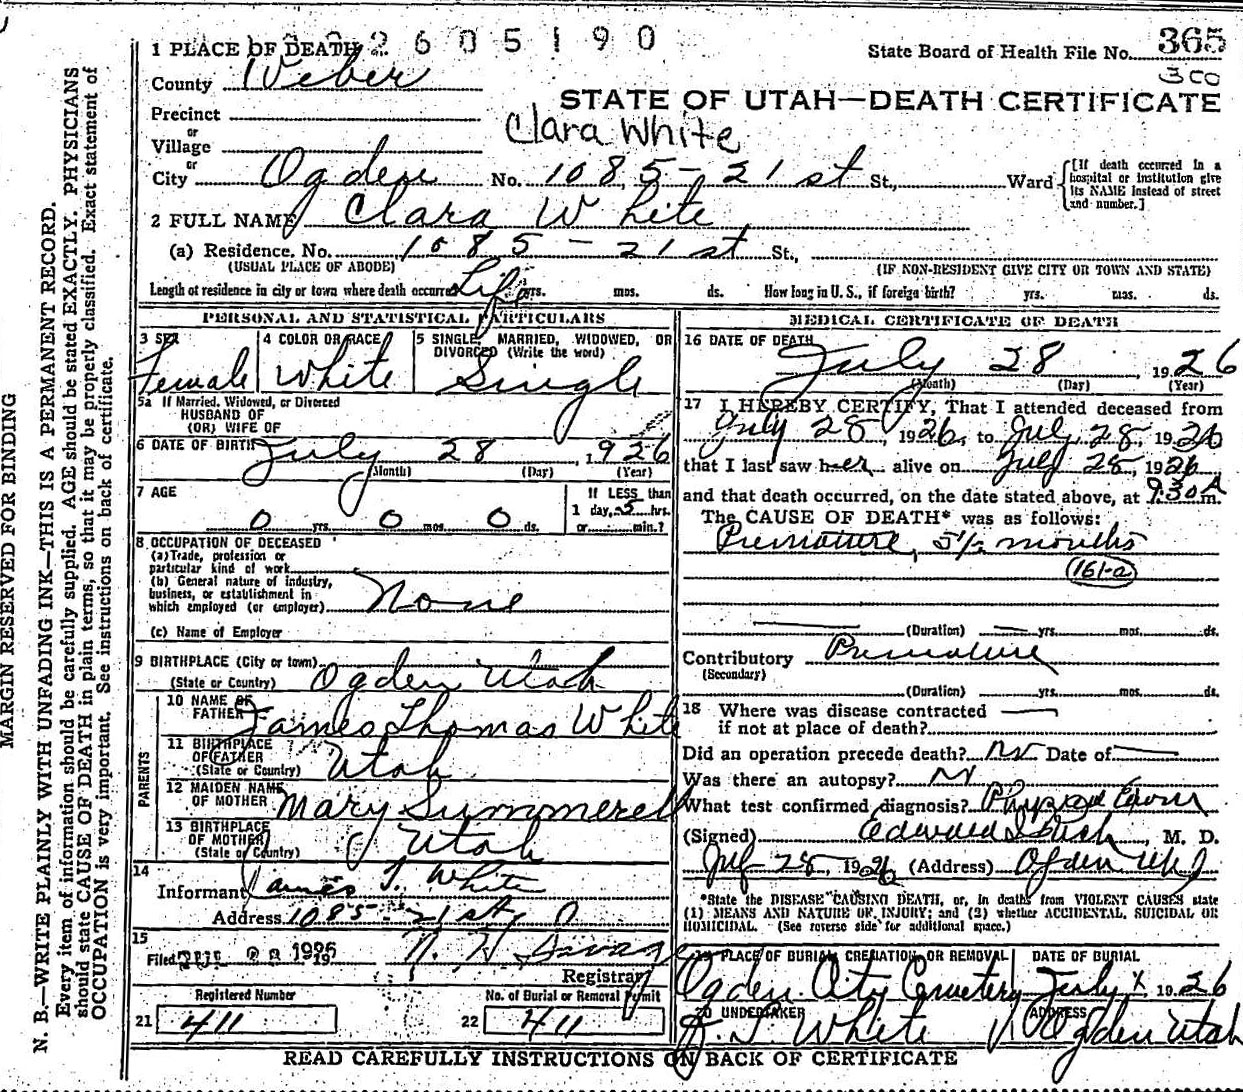 2605190
State Board of Health File No. 365
300
1 PLACE OF DEATH
County Weber
STATE OF UTAH—DEATH CERTIFICATE
Precinct
or
Clara White
Village
or
City Ogden No. 1085-21st St., Ward
[If death occurred in a hospital or institution give its NAME instead of street and number.]
2 FULL NAME Clara White
(a) Residence. No. 1085-21st St.,
(USUAL PLACE OF ABODE) (IF NON-RESIDENT GIVE CITY OR TOWN AND STATE)
Length of residence in city or town where death occurred Life yrs. mos. ds. How long in U. S., if foreign birth? yrs. mos. ds.
PERSONAL AND STATISTICAL PARTICULARS
3 SEX Female
4 COLOR OR RACE White
5 SINGLE, MARRIED, WIDOWED, OR DIVORCED (Write the word) Single
5a If Married, Widowed, or Divorced
HUSBAND OF
(OR) WIFE OF
6 DATE OF BIRTH July 28, 1926
(Month) (Day) (Year)
7 AGE 0 yrs. 0 mos. 0 ds.
If LESS than
1 day, 5 hrs.
or min.?
8 OCCUPATION OF DECEASED
(a) Trade, profession or
particular kind of work
(b) General nature of industry,
business, or establishment in
which employed (or employer) None
(c) Name of Employer
9 BIRTHPLACE (City or town)
(State or Country) Ogden Utah
PARENTS
10 NAME OF FATHER James Thomas White
11 BIRTHPLACE OF FATHER (State or Country) Utah
12 MAIDEN NAME OF MOTHER Mary Summerell
13 BIRTHPLACE OF MOTHER (State or Country) Utah
14
Informant James T. White
Address 1085-21st
15
Filed 1926
Registrar
Registered Number
21 411
No. of Burial or Removal Permit
22 411
MEDICAL CERTIFICATE OF DEATH
16 DATE OF DEATH
July 28 1926
(Month) (Day) (Year)
17 I HEREBY CERTIFY, That I attended deceased from
July 28, 1926, to July 28, 1926
that I last saw her alive on July 28, 1926
and that death occurred, on the date stated above, at 9:30 A m.
The CAUSE OF DEATH* was as follows:
Premature, 5½ months
161-a
(Duration) yrs. mos. ds.
Contributory Premature
(Secondary)
(Duration) yrs. mos. ds.
18 Where was disease contracted
if not at place of death?
Did an operation precede death? no Date of
Was there an autopsy? no
What test confirmed diagnosis? Physical Exam
(Signed) Edward M. D.
July 28, 1926 (Address) Ogden Utah
*State the DISEASE CAUSING DEATH, or, in deaths from VIOLENT CAUSES state
(1) MEANS AND NATURE OF INJURY; and (2) whether ACCIDENTAL, SUICIDAL OR
HOMICIDAL. (See reverse side for additional space.)
19 PLACE OF BURIAL, CREMATION, OR REMOVAL
Ogden City Cemetery
DATE OF BURIAL
July 1926
20 UNDERTAKER
J. T. White
ADDRESS
Ogden Utah
READ CAREFULLY INSTRUCTIONS ON BACK OF CERTIFICATE
MARGIN RESERVED FOR BINDING
N. B.—WRITE PLAINLY WITH UNFADING INK—THIS IS A PERMANENT RECORD.
Every item of information should be carefully supplied. AGE should be stated EXACTLY. PHYSICIANS
should state CAUSE OF DEATH in plain terms, so that it may be properly classified. Exact statement of
OCCUPATION is very important. See instructions on back of certificate.